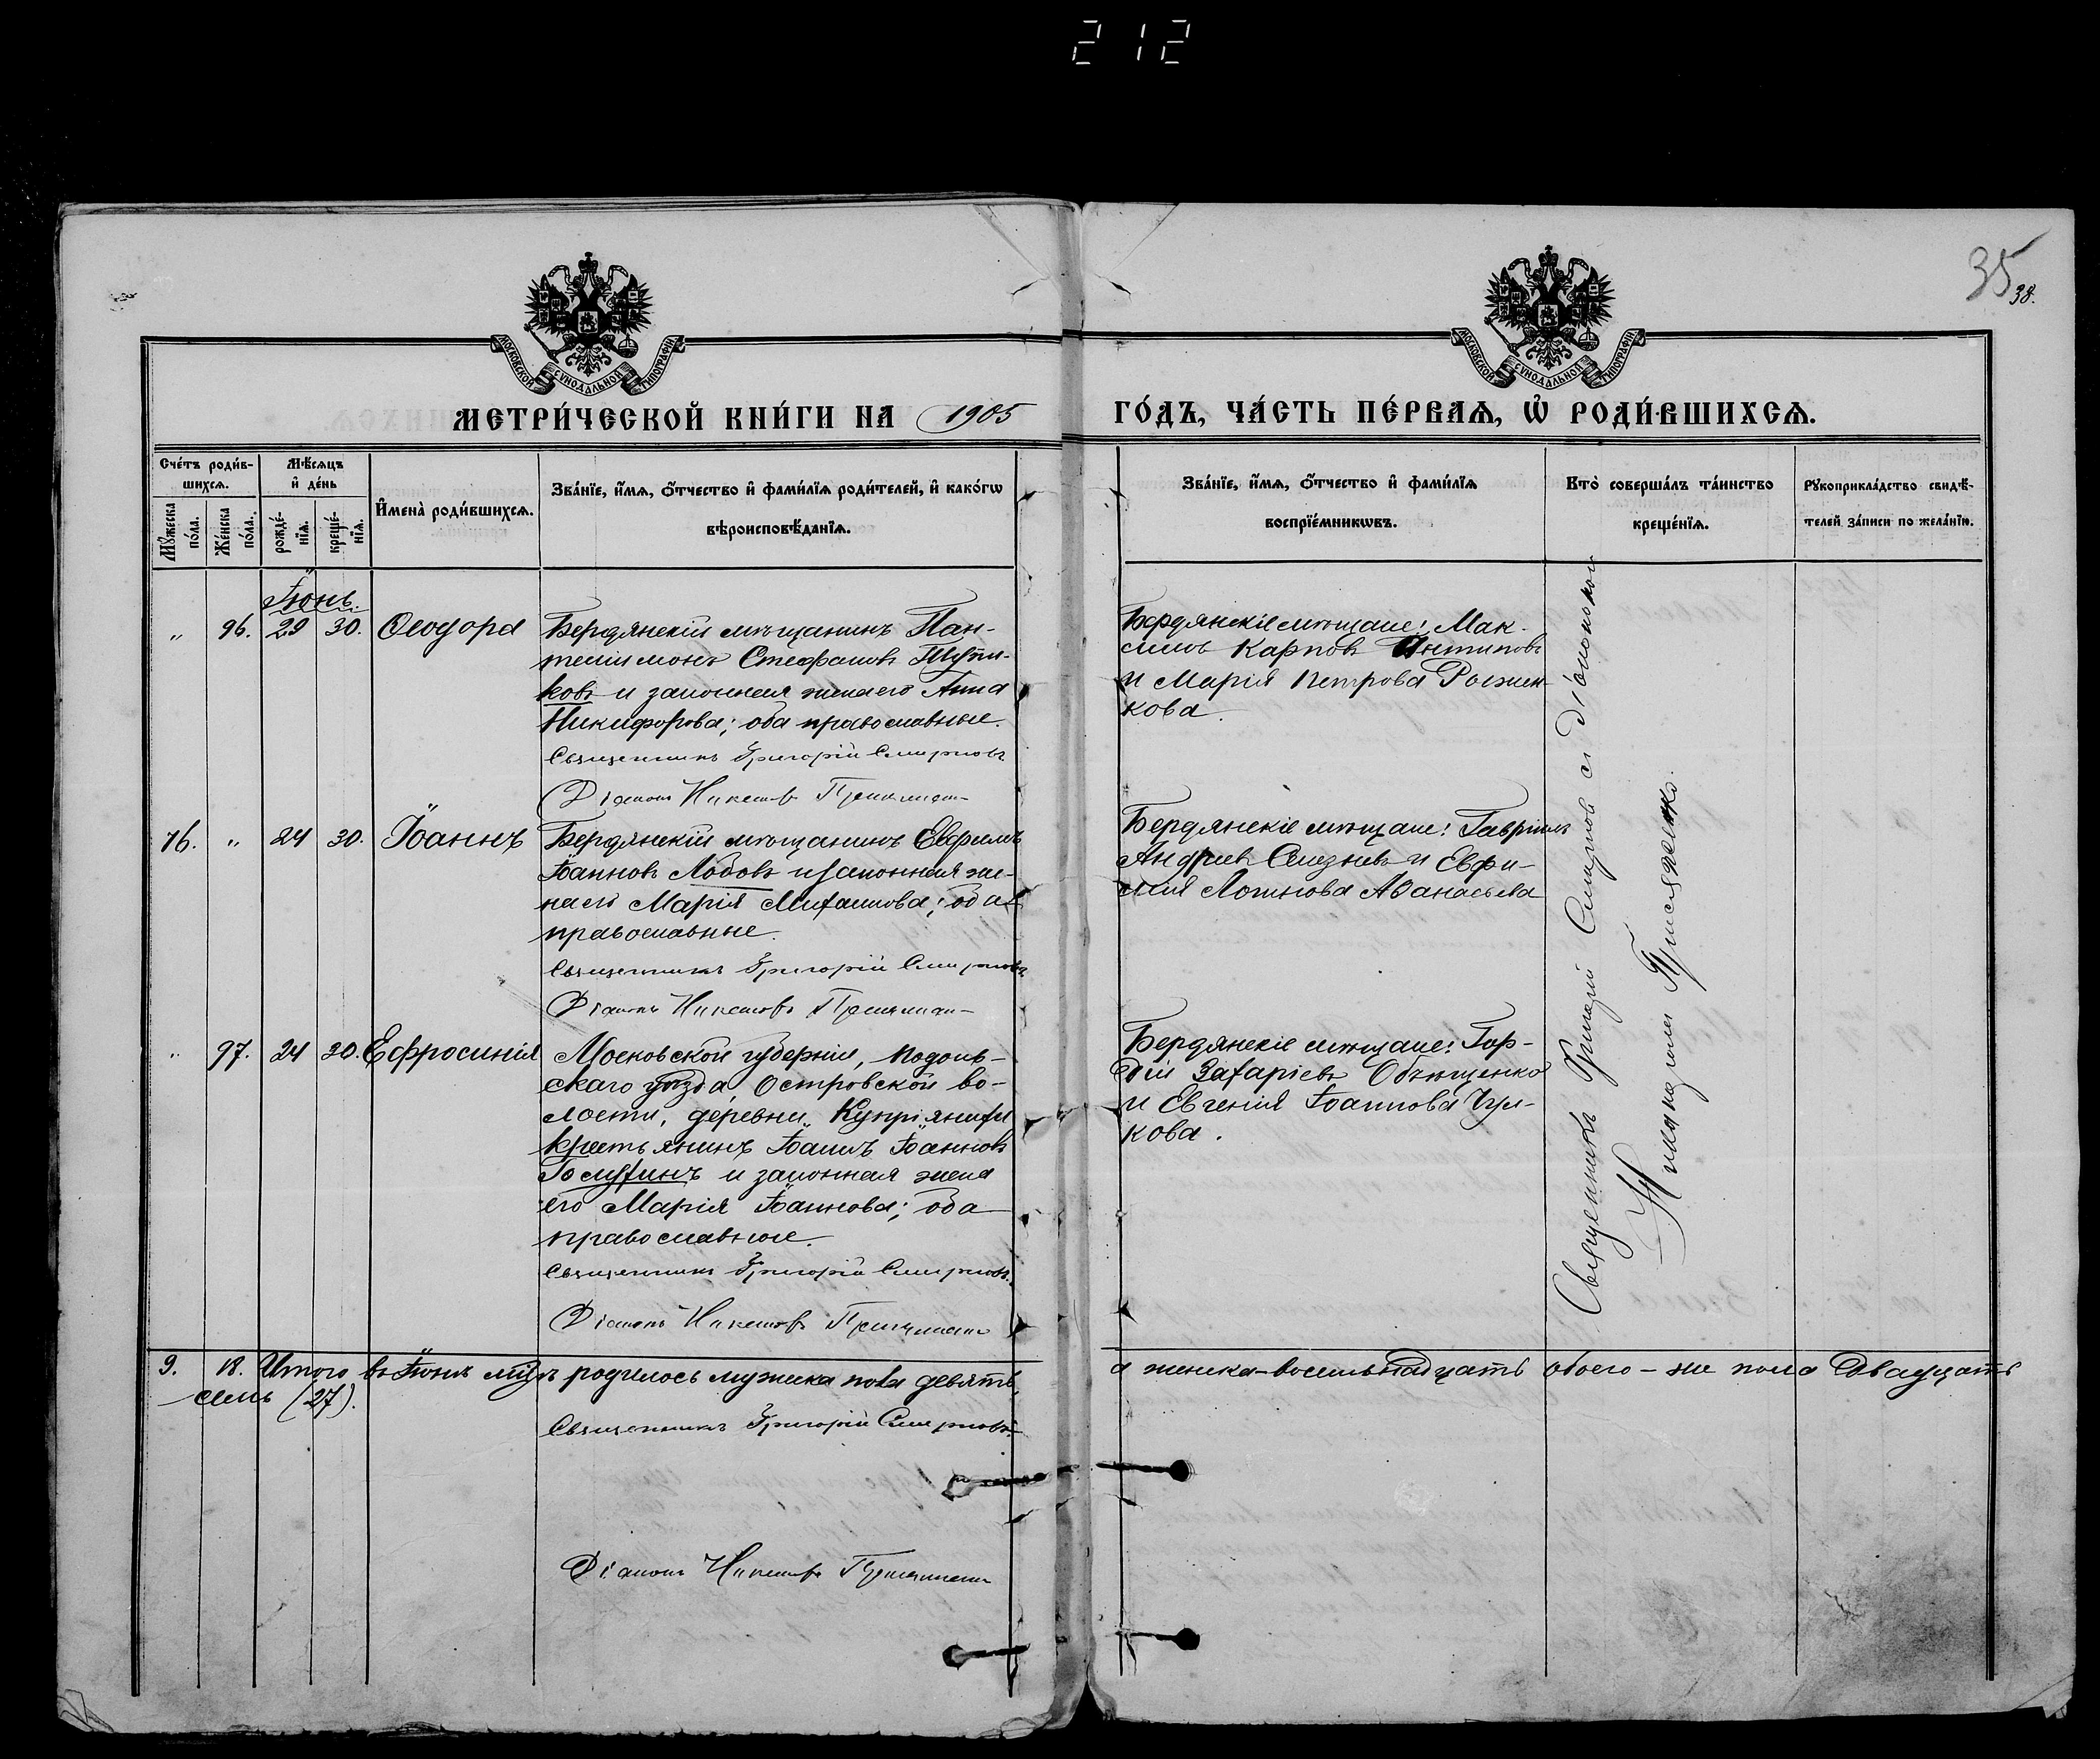 212
35
38.
МОСКОВСКОЙ СУНОДАЛЬНОЙ ТИПОГРАФІИ
МОСКОВСКОЙ СУНОДАЛЬНОЙ ТИПОГРАФІИ
МЕТРИ́ЧЕСКОЙ КНИ́ГИ НА 1905 ГО́ДЪ, ЧА́СТЬ ПЕ́РВАѦ, Ѡ РОДИ́ВШИХСѦ.
Сче́тъ роди́в-
шихсѧ.
Мꙋжеска по́ла.
Же́нска по́ла.
Мѣ́сѧцъ
и҆ де́нь
рожде́-
нїѧ.
креще́-
нїѧ.
И҆мена̀ роди́вшихсѧ.
Зва́нїе, и҆́мѧ, о҆́тчество и҆ фами́лїѧ роди́телей, и҆ како́гѡ
вѣроисповѣ́данїѧ.
Зва́нїе, и҆́мѧ, о҆́тчество и҆ фами́лїѧ
воспрїе́мникѡвъ.
Кто̀ соверша́лъ та́инство
креще́нїѧ.
Рꙋкоприкла́дство свидѣ́-
телей за́писи по жела́нїю.
Іюнь.
" 96. 29 30. Ѳеодора
Бердянскій мѣщанинъ Пан-
телиімонъ Стефановъ Тупи-
ковъ и законная жена его Анна
Никифорова; оба православные.
Священникъ Григорій Смирновъ
Діаконъ Никаноръ
Бердянскіе мѣщане: Мак-
симъ Карповъ Антиповъ
и Марія Петрова Рожен-
кова.
76. " 24 30. Іоаннъ
Бердянскій мѣщанинъ Евфимъ
Іоанновъ Лобовъ и законная же-
на его Марія Михаилова; оба
православные.
Священникъ Григорій Смирновъ
Діаконъ Никаноръ
Бердянскіе мѣщане: Гавріилъ
Андреевъ Селезневъ и Евфи-
мія Логинова Аѳанасьева
" 97. 24 30. Ефросинія
Московской губерніи, Подоль-
скаго уѣзда, Островской во-
лости, деревни Купріянихи
крестьянинъ Іоаннъ Іоанновъ
Голухинъ и законная жена
его Марія Іоаннова; оба
православные.
Священникъ Григорій Смирновъ.
Діаконъ Никаноръ
Бердянскіе мѣщане: Гор-
дій Захаріевъ Обѣщенко
и Евгенія Іоаннова Чул-
кова.
Священникъ Григорій Смирновъ съ діакономъ
Никаноромъ
9. 18. Итого въ Іюнѣ мцѣ родилось мужска пола девять, а женска-восемьнадцать обоего-же пола двадцать
семь (27).
Священникъ Григорій Смирновъ
Діаконъ Никаноръ